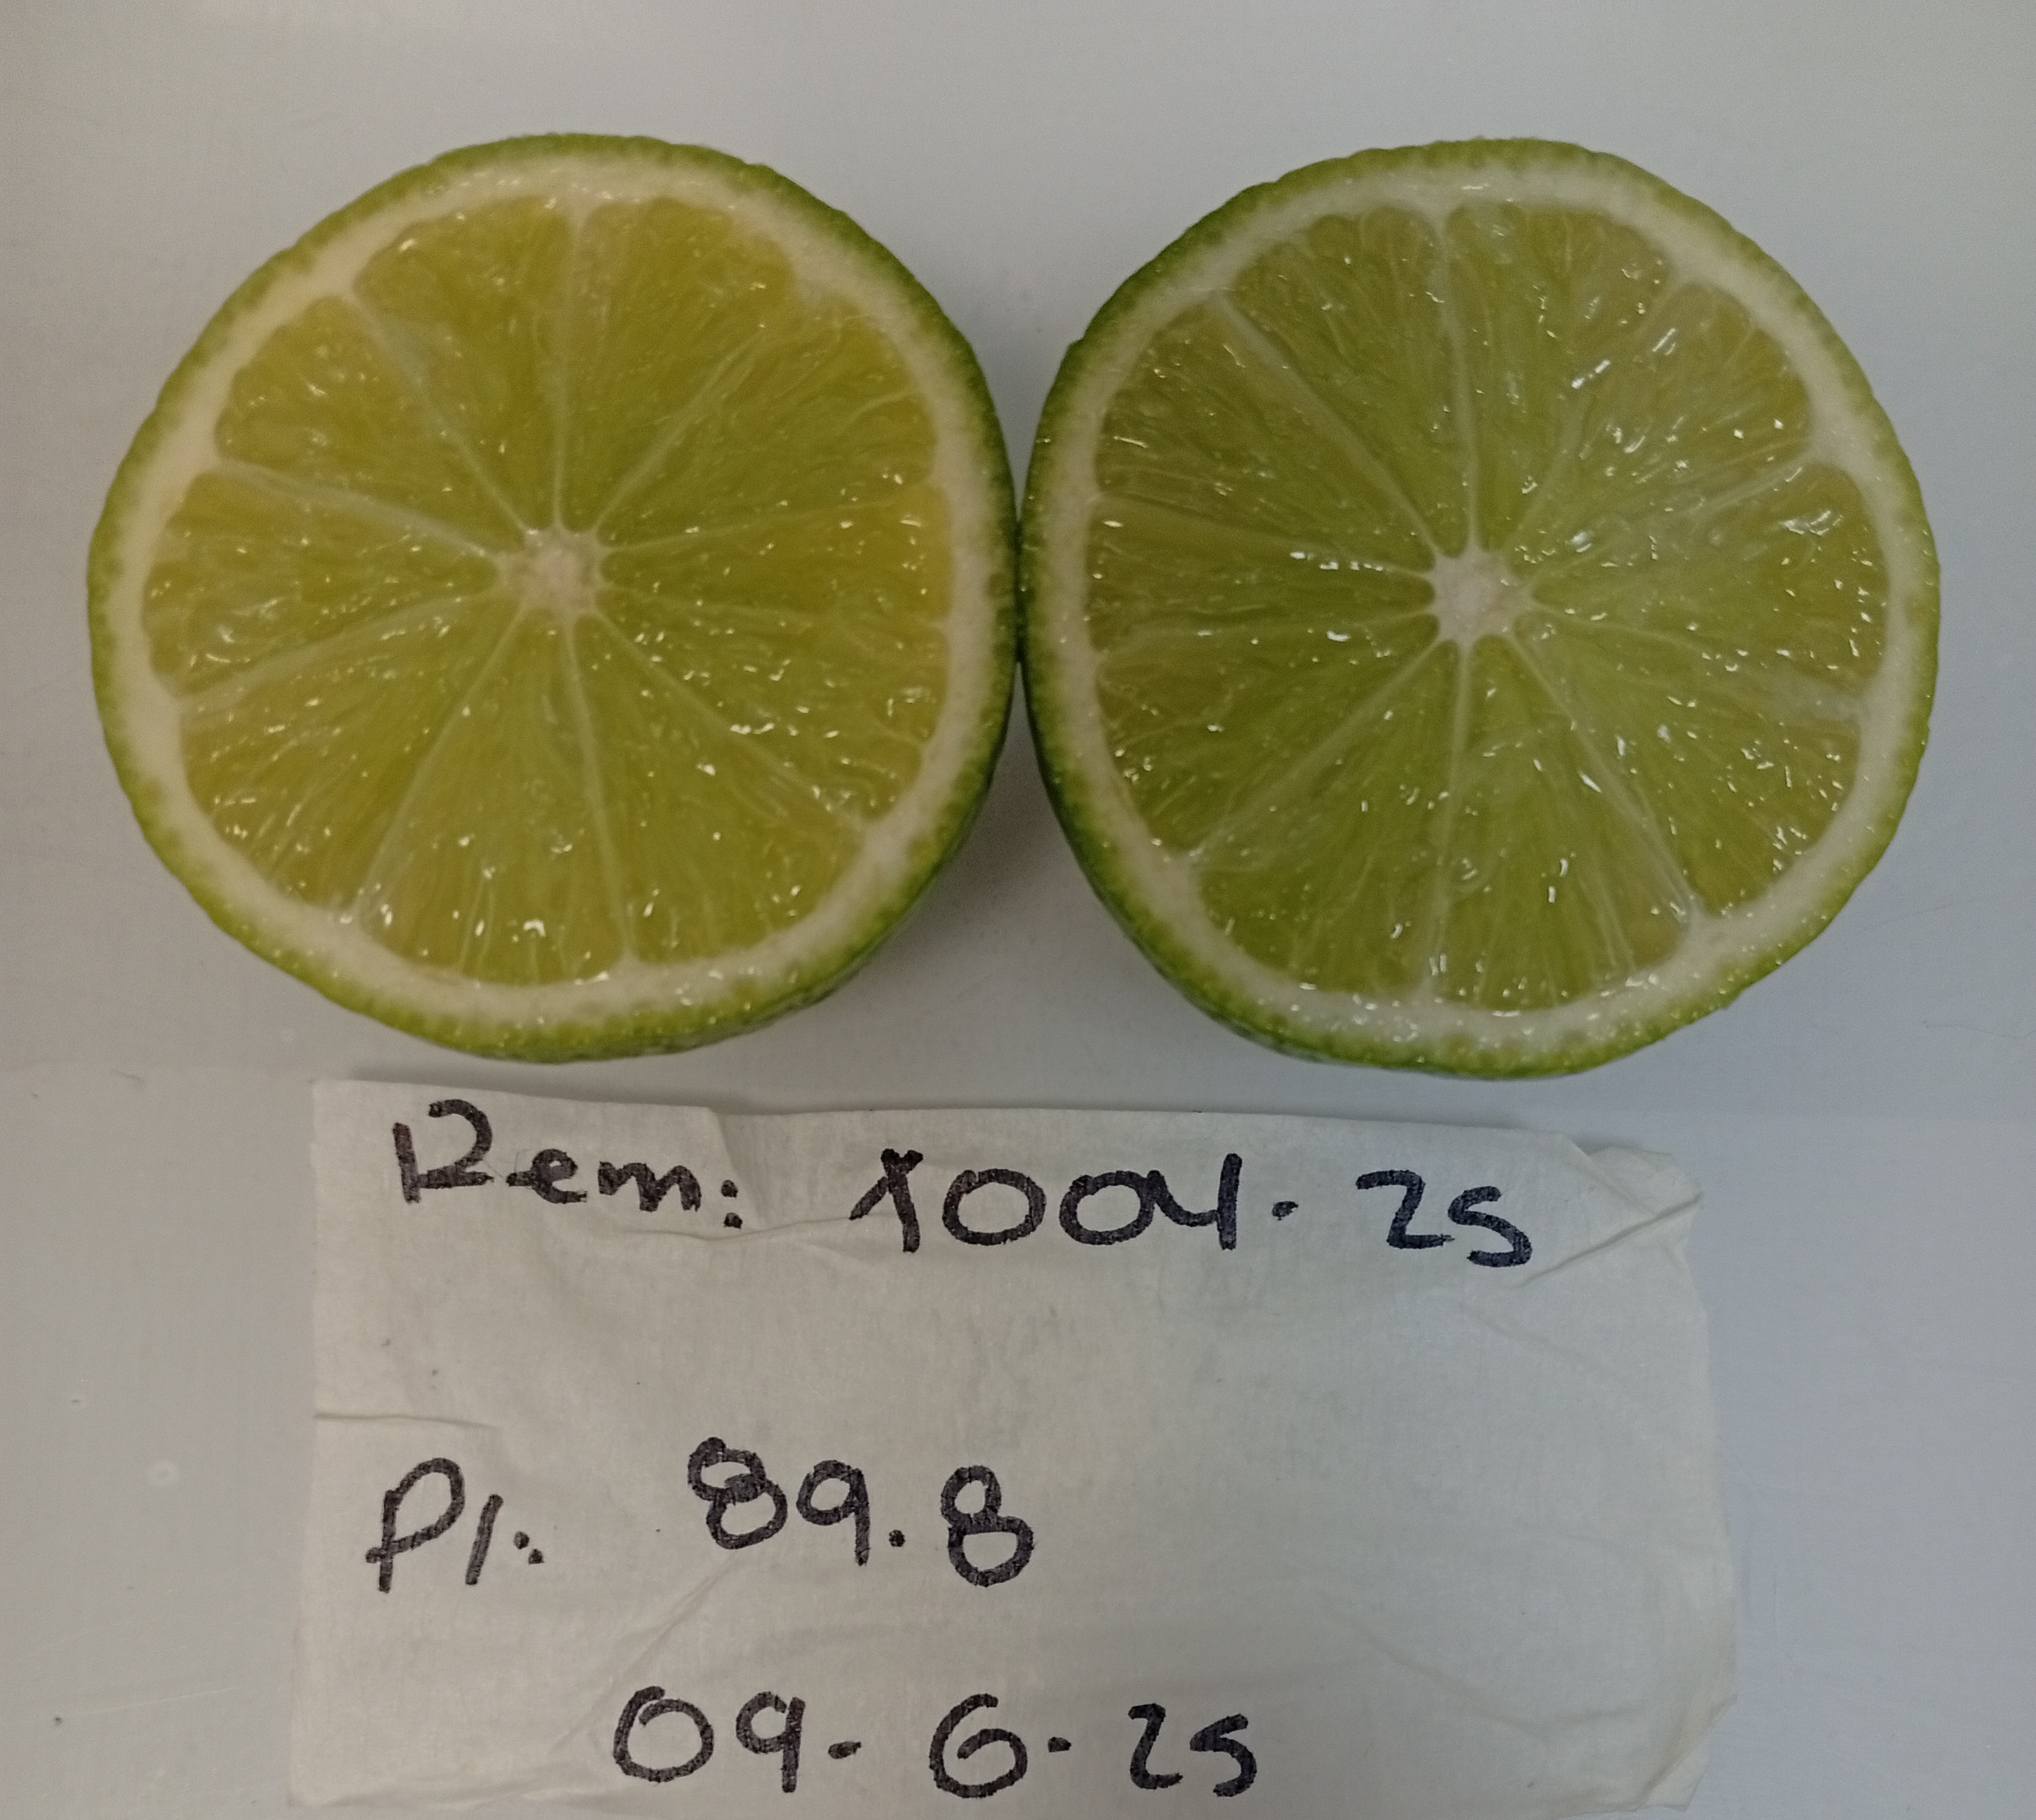 Rem: 1004-25
P1: 89.8
09-6-25